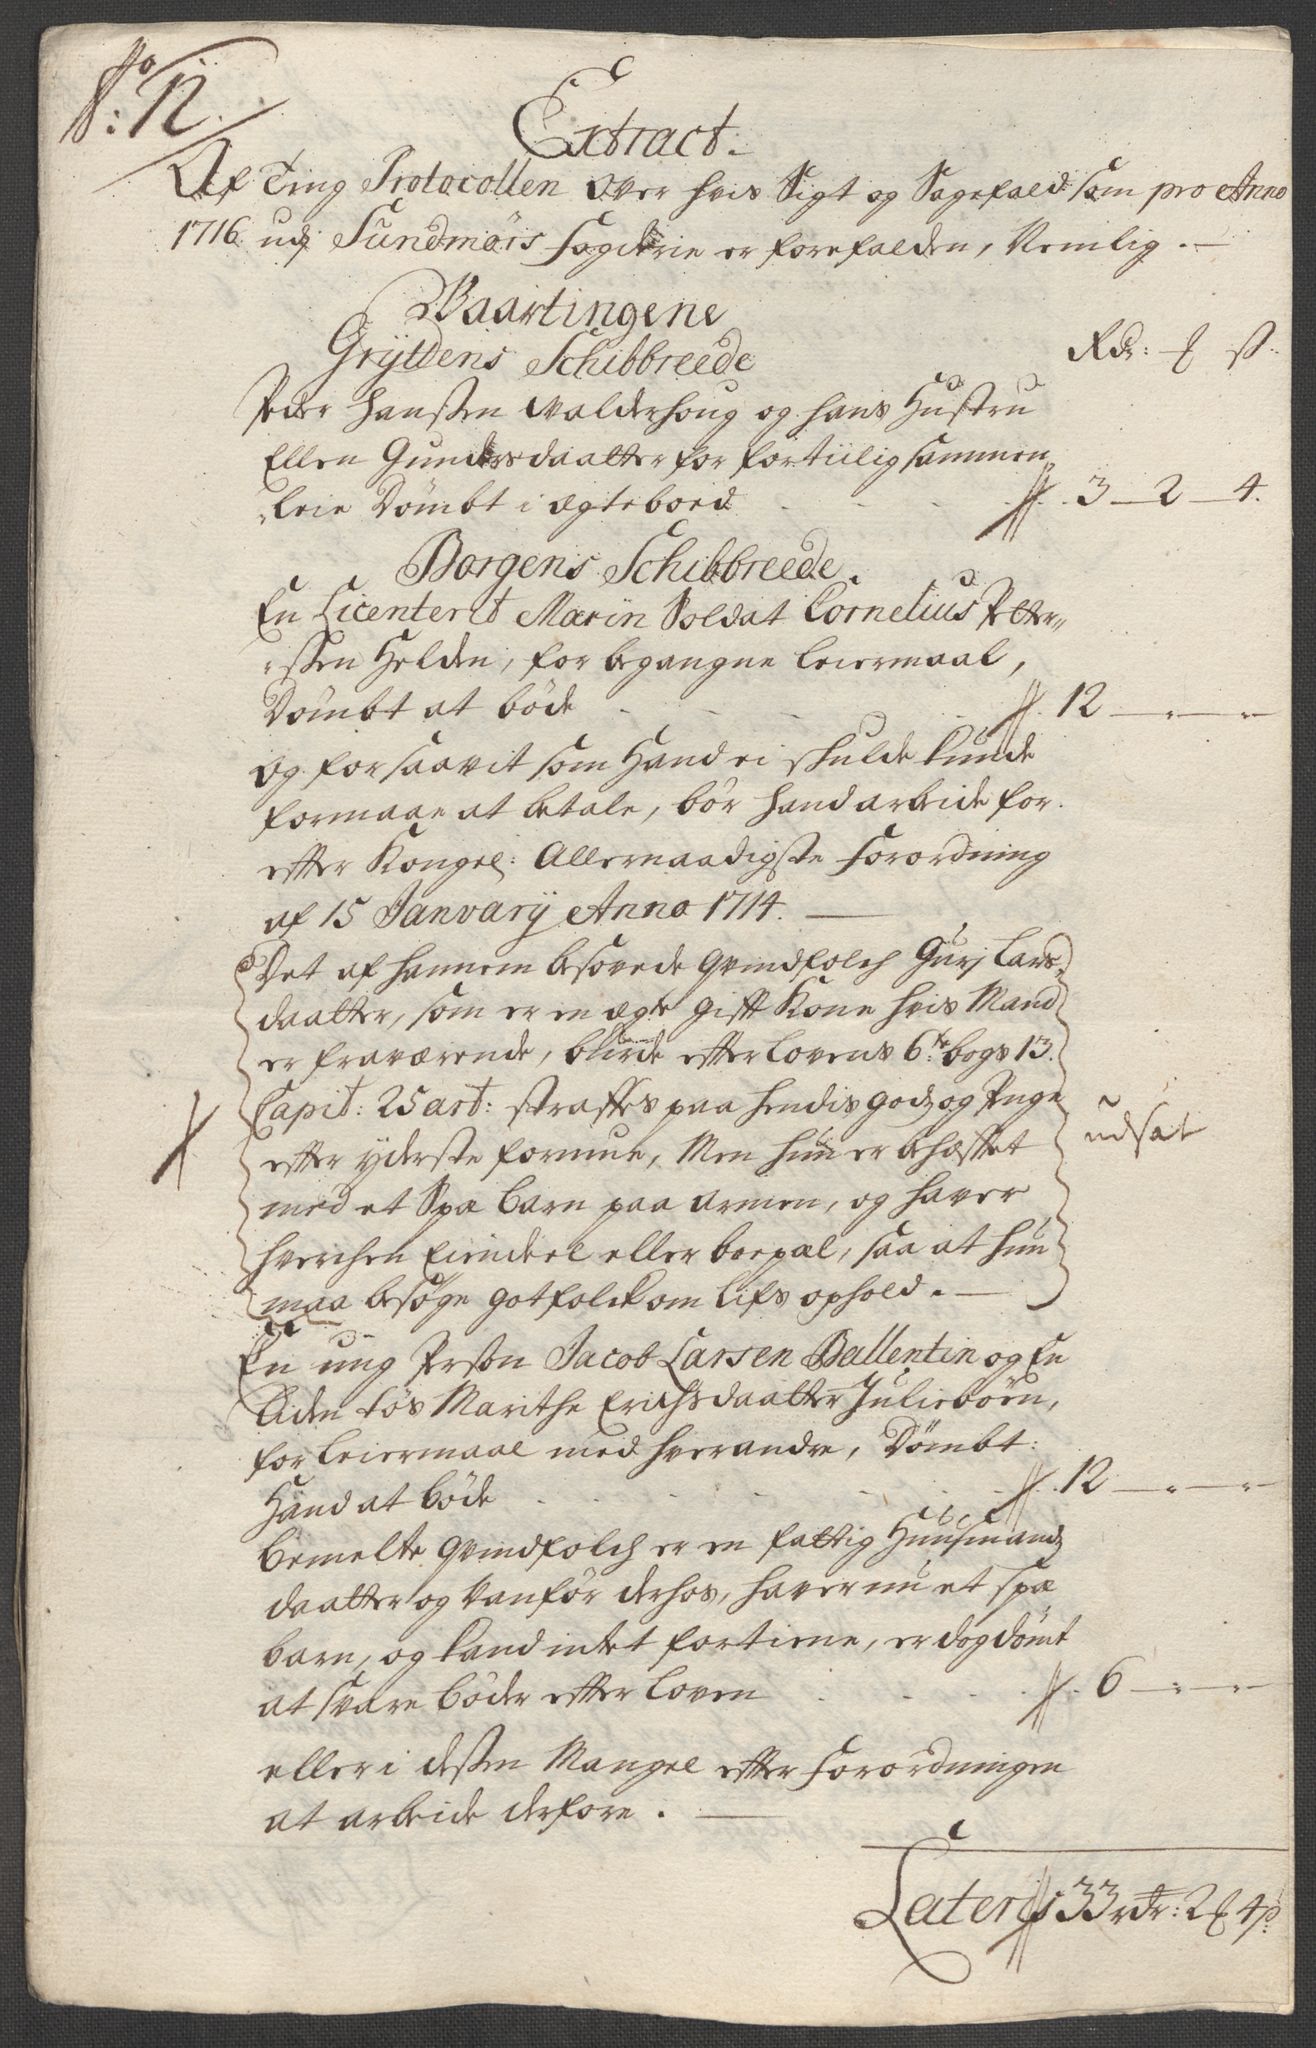 No: 12.
Extract.
Af Ting Protocollen over hvis Sigt og Sagefald som pro Anno
1716 udj Sundmørs Fogderie er forefalden, Nemlig.
Vaartingene
Gryttens Schibbreede
Rdr: ß
Peder Hanssen Valderhoug og hans Hustru
Ellen Gundersdaatter for fortiilig sammen
leie Dømbt i ægtebøed 3 - 2 - 4.
Borgens Schibbreede.
En Licenterit Marin Soldat Cornelius Petter-
ssen Helden, for begangne leiermaal,
Dømbt at bøde 12 - " - "
og forsaavit som Hand ei skulde kunde
formaae at betale, bør hand arbeide for
efter Kongel: Allernaadigste Forordning
af 15 Janvarij Anno 1714.
Det af hannem besovede qvindfolch Gurj Lars-
daatter, som er en ægte gift Kone hvis Mand
er fraværende, burde efter lovens 6te bogs 13.
Capit: 25 art: straffes paa hendis godz og Penge
efter yderste formue, Men hun er behæftet
udsat
med et Spæ barn paa armen, og haver
hverchen Eiendeel eller boepæl, saa at hun
maa besøge gotfolck om lifs ophold.
En ung Person Jacob Larsen Ballentin og En
liden tøs Marithe Erichsdaatter Juliebøen,
for leiermaal med hverandre, Dømbt:
Hand at bøde 12 - " - "
bemelte qvindfolch er en fattig Huusmandz
daatter og vanfør derhos, haver nu et spæ
barn, og kand intet fortiene, er dog dømt
at svare bøder efter loven 6 - " - "
eller i dessen Mangel efter Forordningen
at arbeide derfore.
Lateris 33 rdr: 2 4 ß